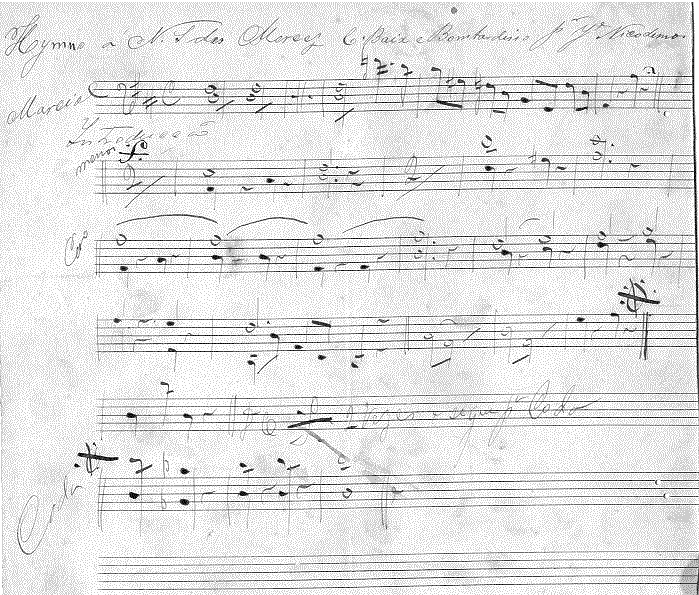 Hymno a N. S. das Mercez C. Baix e Bombardino p.r J.e Nicodemos
Marcia
Introducção
menos
Coro
D C 2 Vezes e segue p.a Coda
Coda